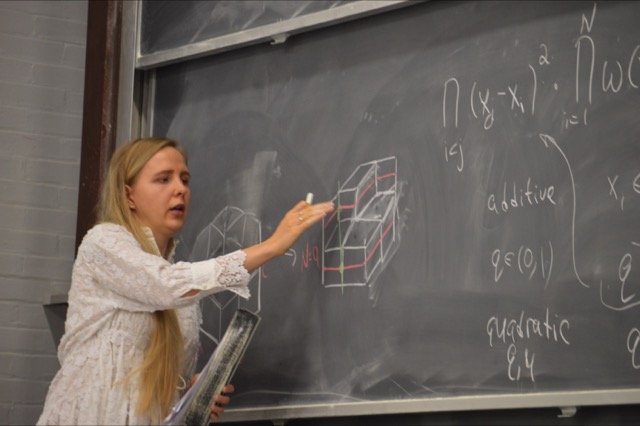 ∏_{i<j} (x_j - x_i)^2 · ∏_{i=1}^{N} ω(
additive
q ∈ (0,1)
quadratic
q, 4
x_1 ≤
q
q